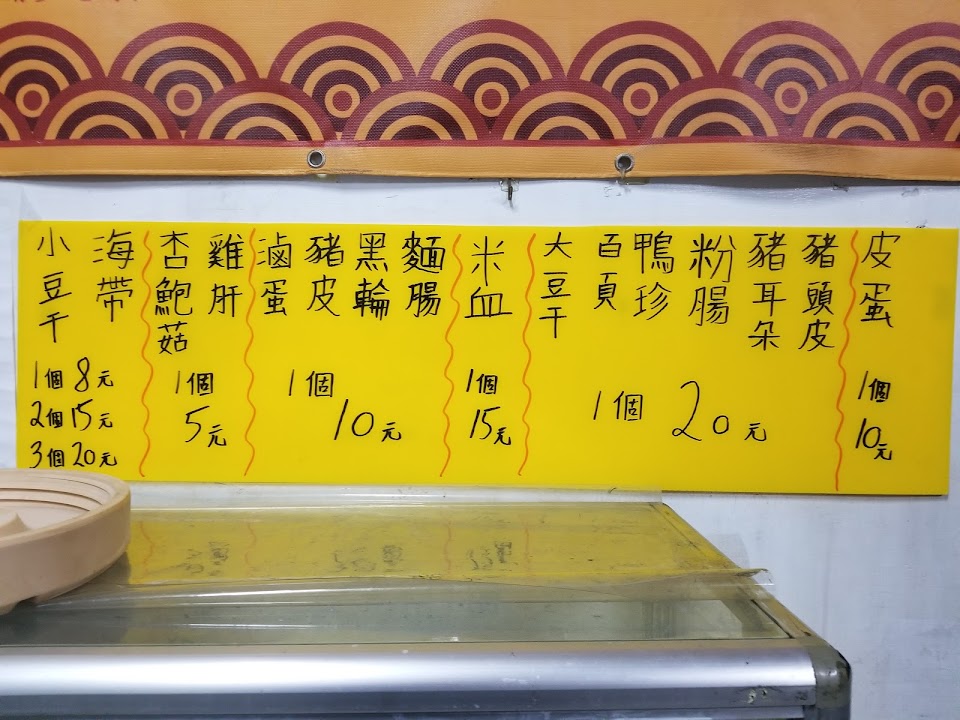 小豆干
海帶
1個 8元
2個 15元
3個 20元
杏鮑菇
雞肝
1個
5元
滷蛋
豬皮
黑輪
麵腸
1個
10元
米血
1個
15元
大豆干
百頁
鴨珍
粉腸
豬耳朵
豬頭皮
1個 20元
皮蛋
1個
10元